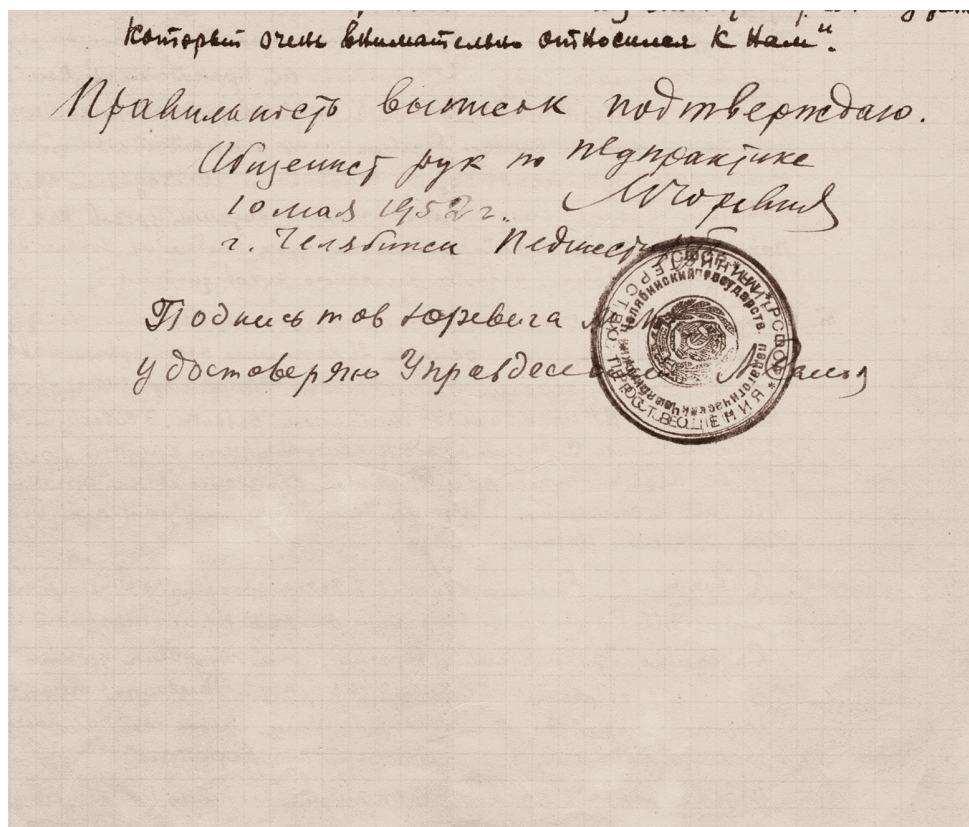 который очень внимательно относился к Нам".
Правильность выписок подтверждаю.
Общеинст рук по педпрактике
МЮревич
10 мая 1952 г.
г. Челябинск Пединститут
Подпись тов Юревича
удостоверяю Управделами
МИНИСТЕРСТВО ПРОСВЕЩЕНИЯ РСФСР
Челябинский государств. педагогический